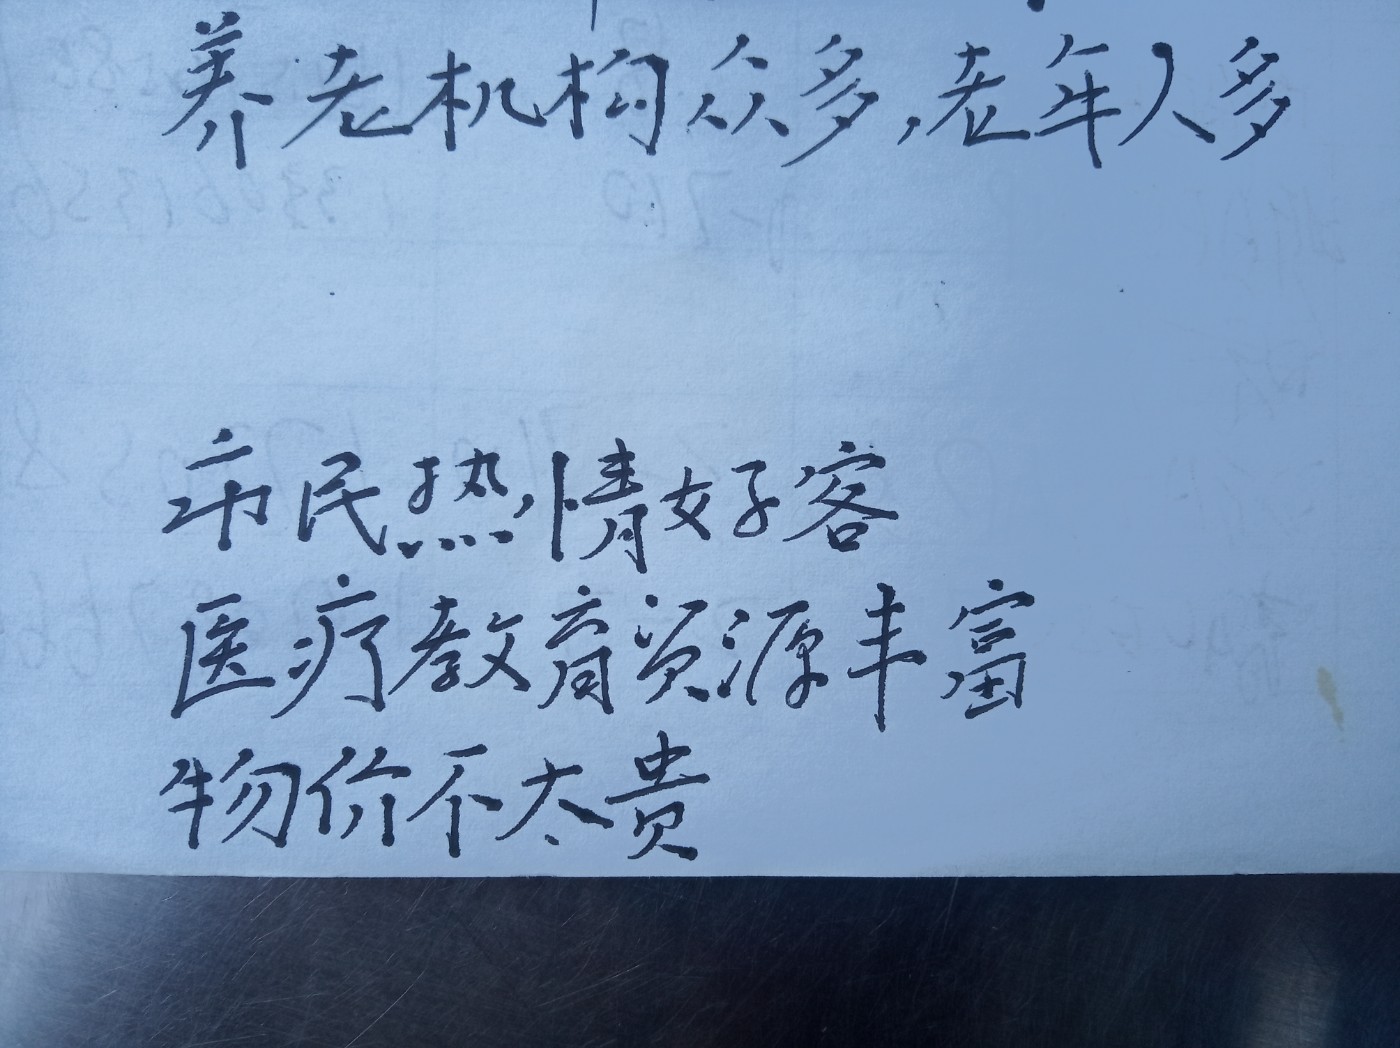 养老机构众多,老年人多
市民热情好客
医疗教育资源丰富
物价不太贵